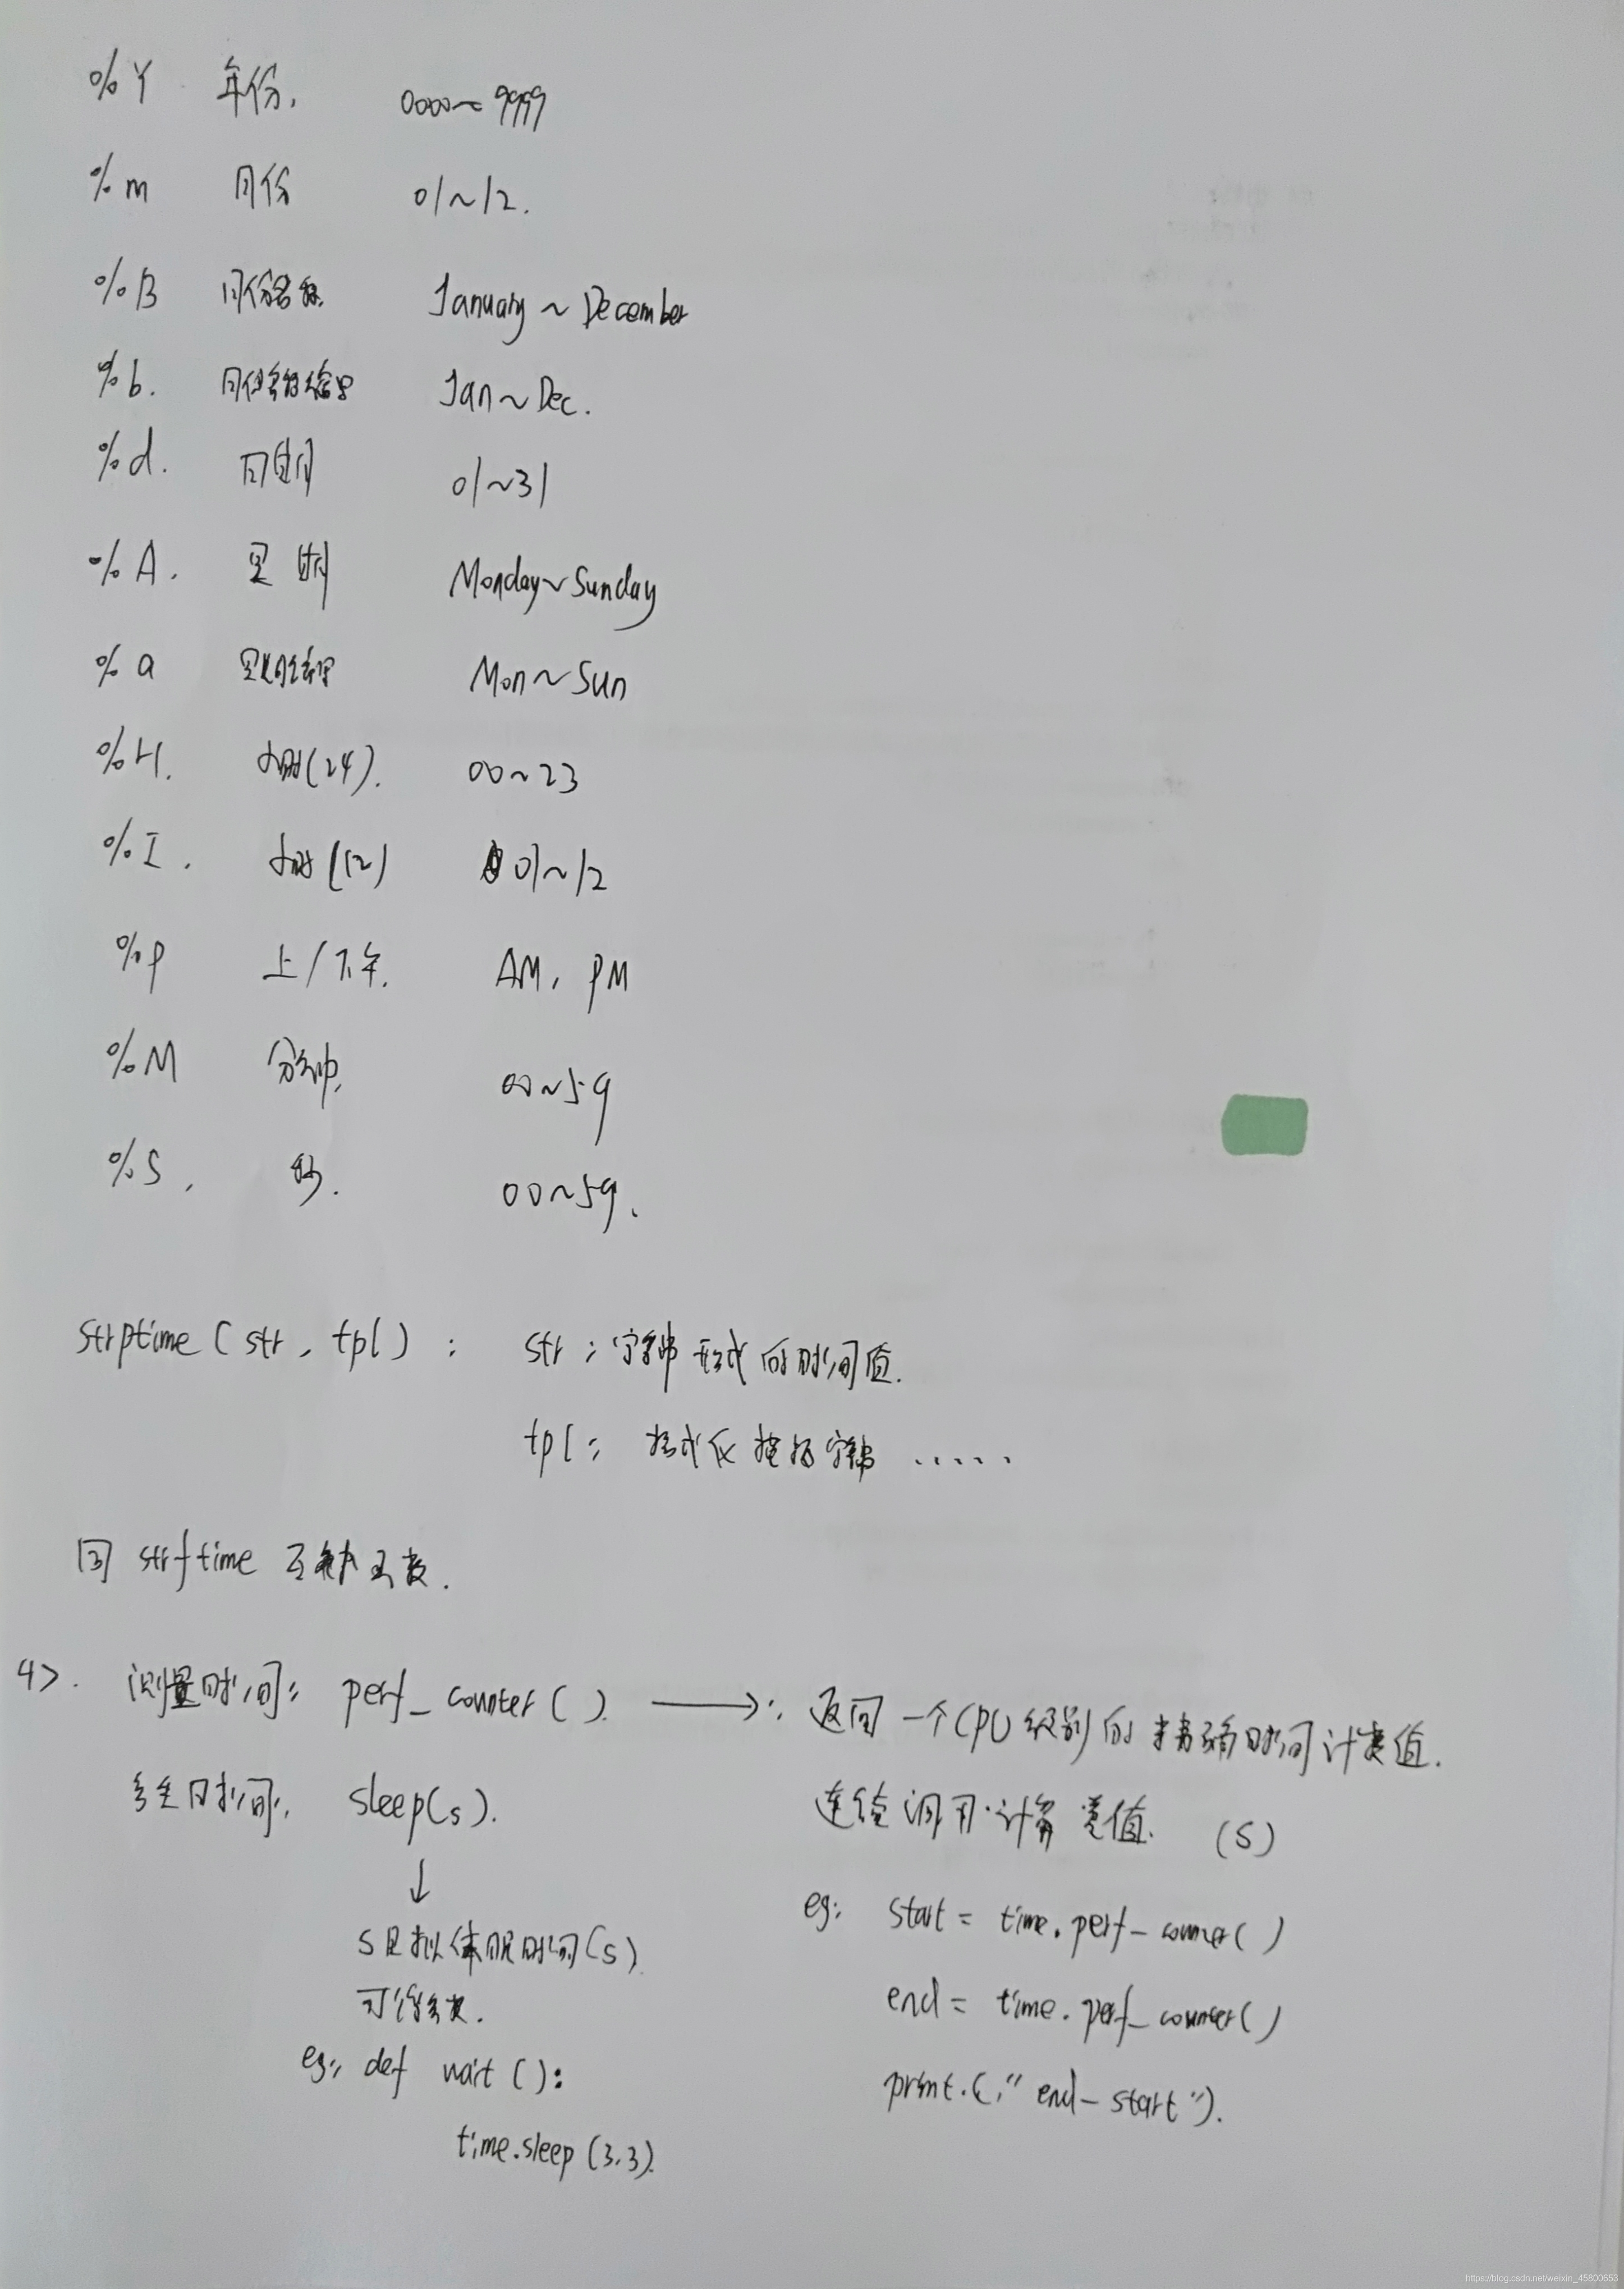 %Y 年份, 0000~9999
%m 月份 01~12.
%B 月份名称 January~December
%b. 月份名称缩写 Jan~Dec.
%d. 日期 01~31
%A. 星期 Monday~Sunday
%a 星期缩写 Mon~Sun
%H. 小时(24). 00~23
%I. 小时(12) 01~12
%p 上/下午. AM, PM
%M 分钟, 00~59
%S, 秒. 00~59.
strptime(str, tpl): str: 字符串形式的时间值.
tpl: 格式化模板字符串 ......
同 strftime 互补函数.
4>. 测量时间: perf_counter() ⟶: 返回一个CPU级别的精确时间计数值.
产生时间, sleep(s). 连续调用·计算差值. (S)
↓
s是拟休眠时间(s) eg: start = time.perf_counter()
可浮点数. end = time.perf_counter()
eg: def wait(): print.("end-start").
time.sleep(3.3).
https://blog.csdn.net/weixin_45800653